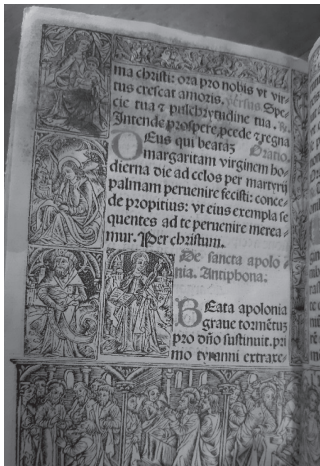 ma christi: ora pro nobis vt vir⸗
tus crescat amoris. Versus Spe⸗
cie tua ⁊ pulchrytudine tua. ℞.
Intende prospere, pcede ⁊ regna
DEus qui beatāȝ Oratio.
margaritam virginem ho⸗
dierna die ad celos per martyrij
palmam peruenire fecisti: conce⸗
de propitius: vt eius exempla se
quentes ad te peruenire merea⸗
mur. Per christum.
De sancta apolo⸗
nia. Antiphona:
BEata apolonia
graue tormētuȝ
pro dño sustinuit. pri
mo tyranni extraxe⸗